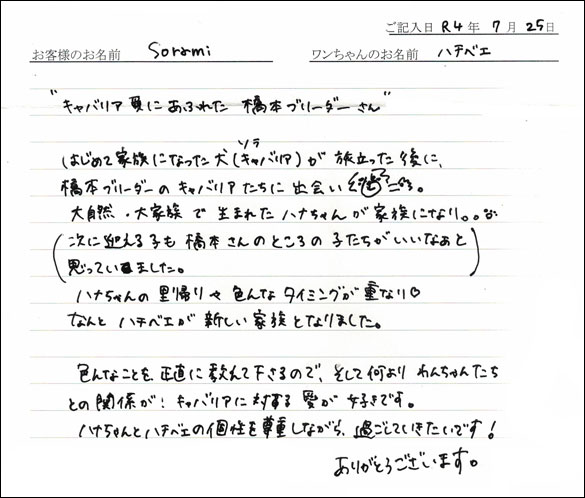 ご記入日 R4年 7月 25日
お客様のお名前 Sorami ワンちゃんのお名前 ハチベエ
"キャバリア愛にあふれた 橋本ブリーダーさん"
ソラ
はじめて家族になった犬(キャバリア)が 旅立った後に、
橋本ブリーダーのキャバリアたちに出会い
大自然・大家族で生まれたハナちゃんが家族になり。。
(次に迎える子も橋本さんのところの子たちがいいなぁと
思っていました。)
ハナちゃんの里帰りや色んなタイミングが重なり♡
なんとハチベエが新しい家族となりました。
色んなことを正直に教えて下さるので、そして何より わんちゃんたち
との関係が! キャバリアに対する愛が好きです。
ハナちゃんとハチベエの個性を尊重しながら、過ごしていきたいです!
ありがとうございます。